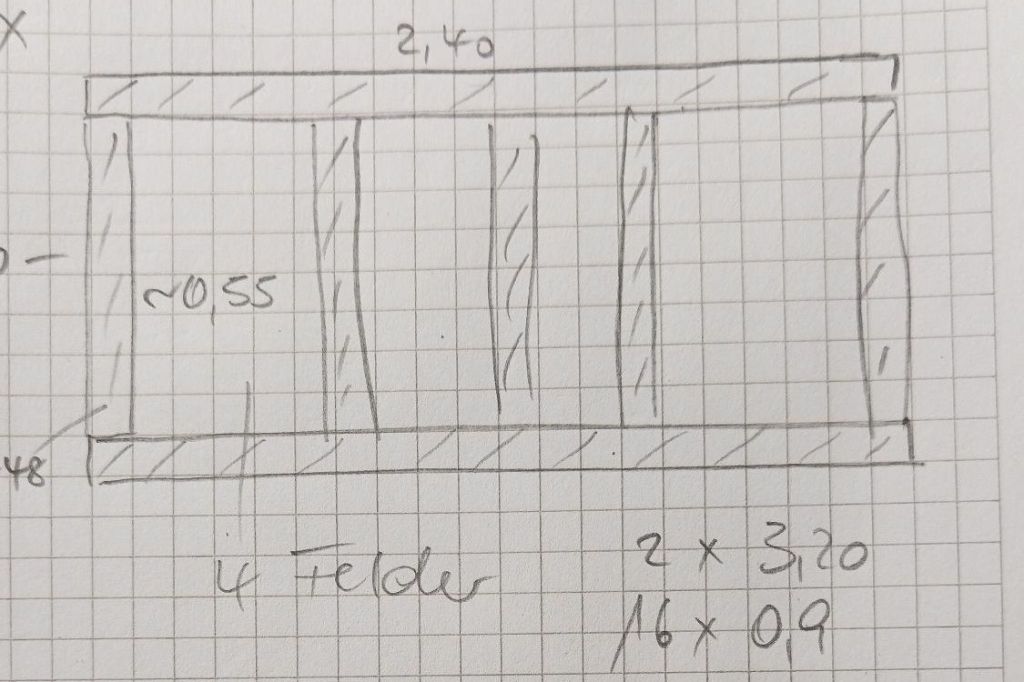 x
2,40
~0,55
48
4 Felder
2 x 3,20
16 x 0,9